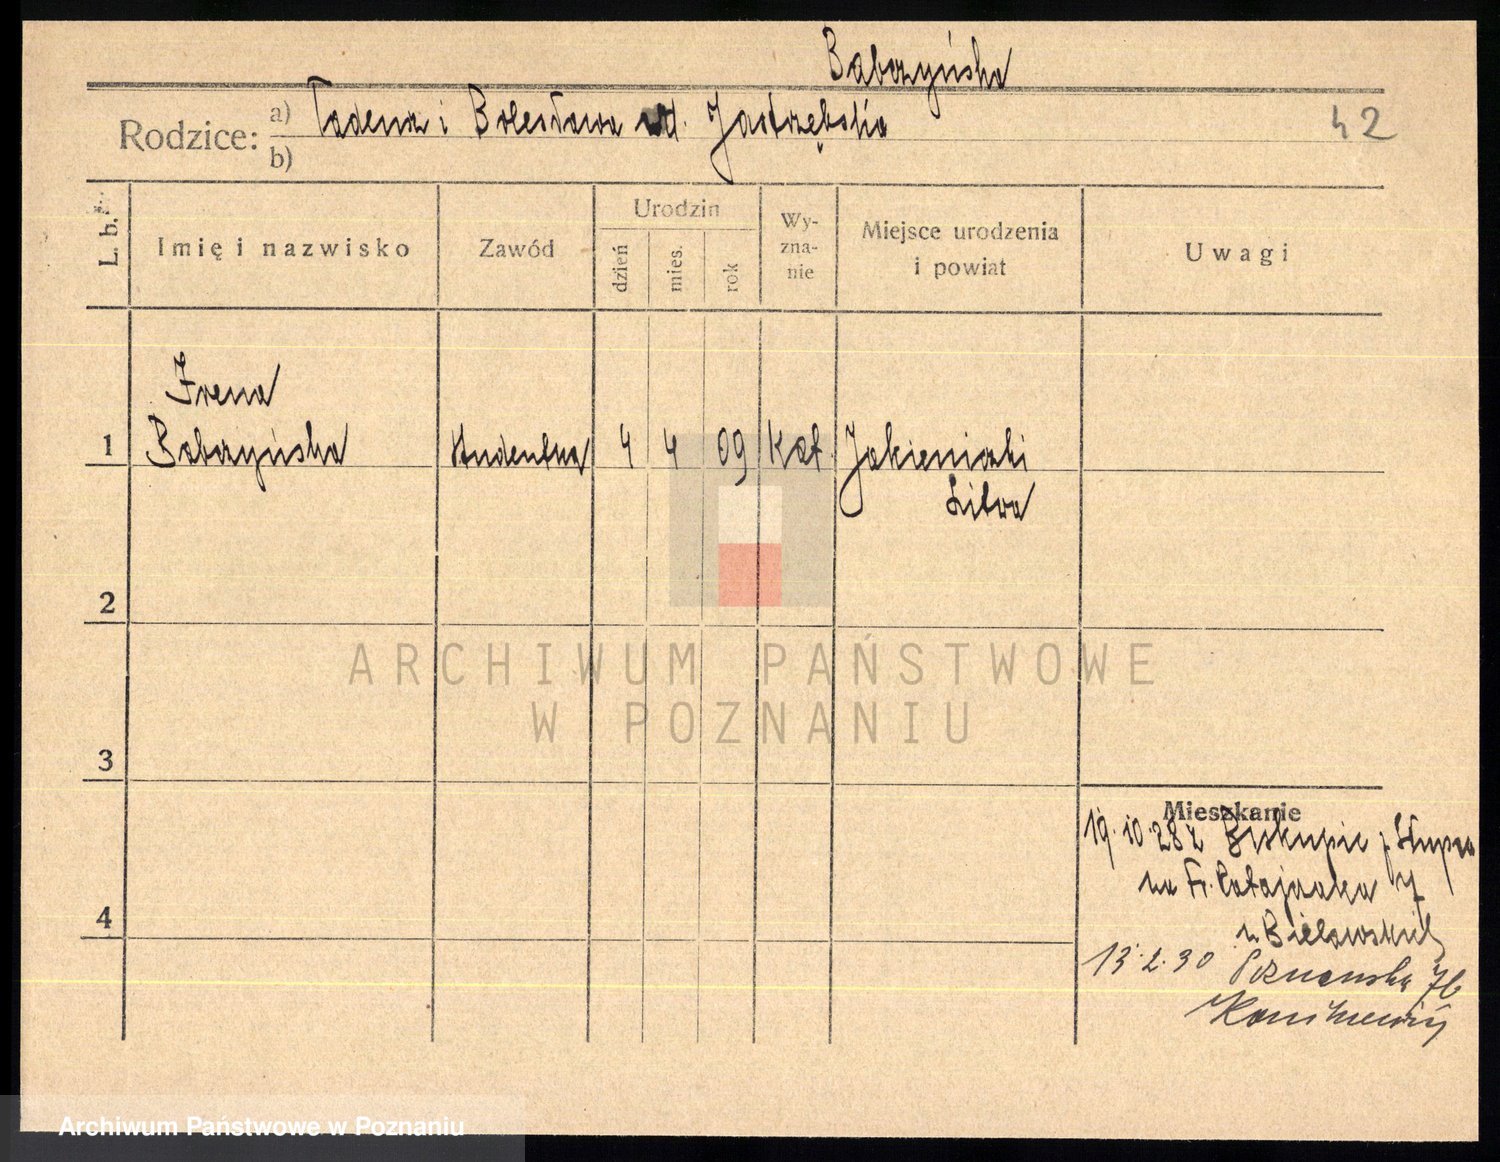 Babrzyńska
Rodzice: a) Tadeusz i Bolesława zd. Jastrzębska
42
b)
L. b. Imię i nazwisko Zawód Urodzin dzień mies. rok Wy-zna-nie Miejsce urodzenia i powiat Uwagi
Irena
1 Babrzyńska studentka 4 4 09 kat. Jakieniszki
Litwa
2
ARCHIWUM PAŃSTWOWE
W POZNANIU
3
Mieszkanie
19.10.28 z Biskupic p. Słupca
na Fr. Ratajczaka
4
u Bielawskich
13.2.30 Poznańska
Archiwum Państwowe w Poznaniu